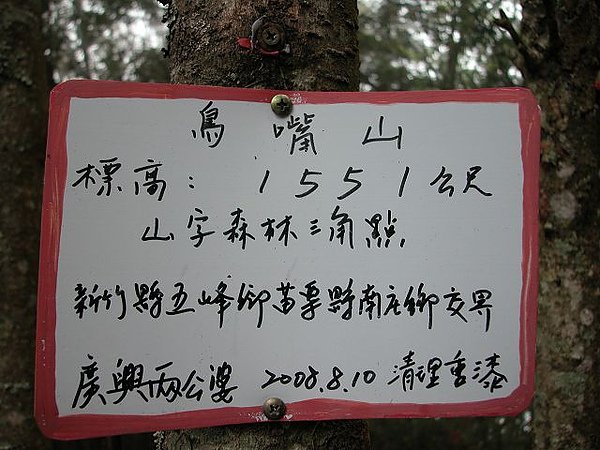 鳥嘴山
標高：1551公尺
山字森林三角點
新竹縣五峰鄉苗栗縣南庄鄉交界
廣興兩公婆 2008.8.10 清理重漆